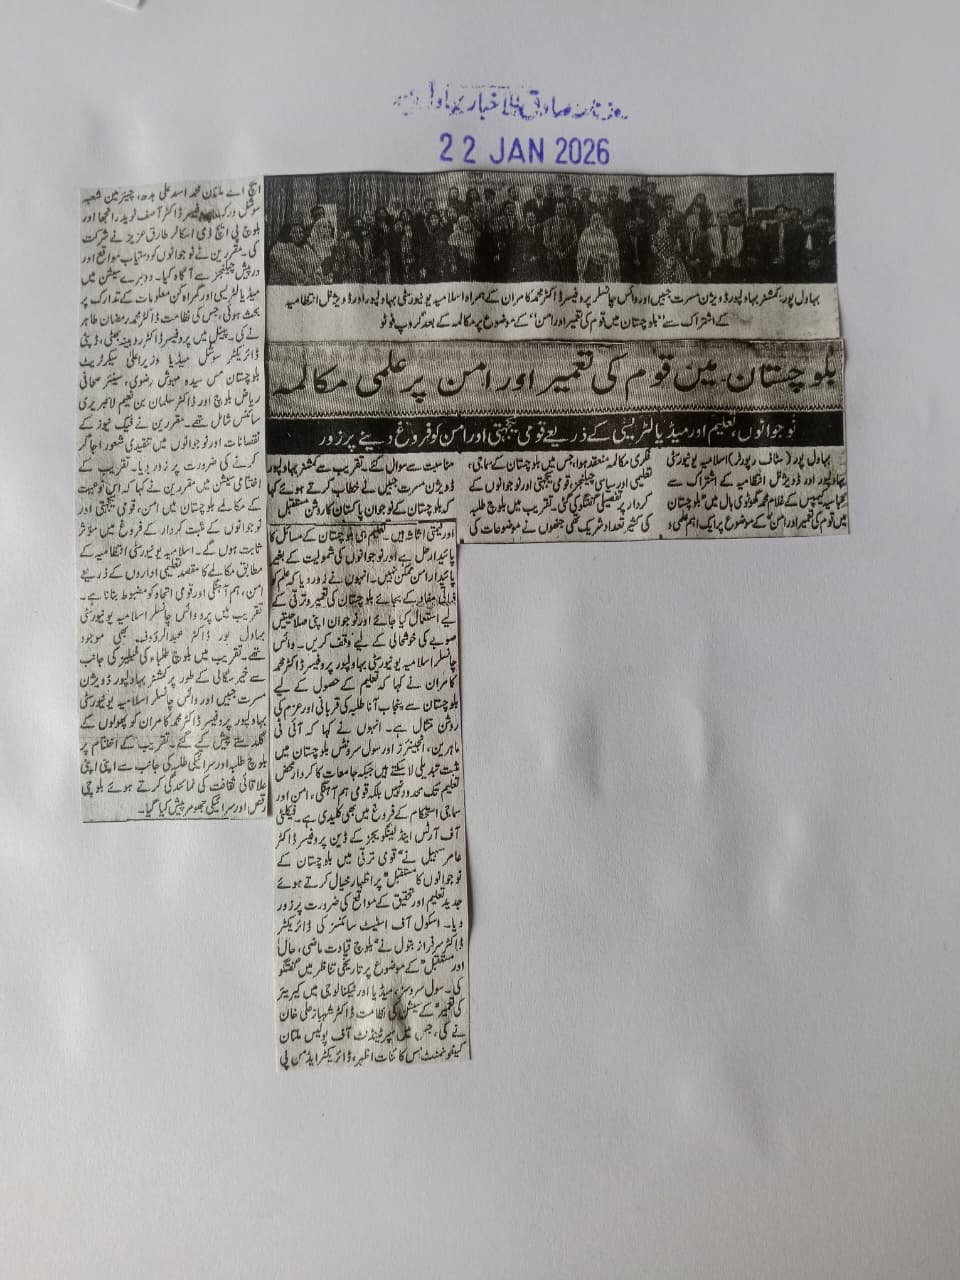 22 JAN 2026
بہاول پور: کمشنر بہاولپور ڈویژن مسرت جبیں اور وائس چانسلر پروفیسر ڈاکٹر محمد کامران کے ہمراہ اسلامیہ یونیورسٹی بہاولپور اور ڈویژنل انتظامیہ
کے اشتراک سے "بلوچستان میں قوم کی تعمیر اور امن" کے موضوع پر مکالمہ کے بعد گروپ فوٹو
بلوچستان میں قوم کی تعمیر اور امن پر علمی مکالمہ
نوجوانوں، تعلیم اور میڈیا لٹریسی کے ذریعے قومی یکجہتی اور امن کو فروغ دینے پر زور
بہاول پور (سٹاف رپورٹر) اسلامیہ یونیورسٹی
بہاولپور اور ڈویژنل انتظامیہ کے اشتراک سے
عباسیہ کیمپس کے غلام محمد گھوٹوی ہال میں "بلوچستان
میں قوم کی تعمیر اور امن" کے موضوع پر ایک اہم علمی و
فکری مکالمہ منعقد ہوا، جس میں بلوچستان کے سماجی،
تعلیمی اور سیاسی چیلنجز، قومی یکجہتی اور نوجوانوں کے
کردار پر تفصیلی گفتگو کی گئی۔ تقریب میں بلوچ طلبہ
کی کثیر تعداد شریک تھی جنھوں نے موضوعات کی
مناسبت سے سوال کئے۔ تقریب سے کمشنر بہاولپور
ڈویژن مسرت جبیں نے خطاب کرتے ہوئے کہا
کہ بلوچستان کے نوجوان پاکستان کا روشن مستقبل
اور قیمتی اثاثہ ہیں۔ تعلیم ہی بلوچستان کے مسائل کا
پائیدار حل ہے اور نوجوانوں کی شمولیت کے بغیر
پائیدار امن ممکن نہیں۔ انہوں نے زور دیا کہ علم کو
ذاتی مفاد کے بجائے بلوچستان کی تعمیر و ترقی کے
لیے استعمال کیا جائے اور نوجوان اپنی صلاحیتیں
صوبے کی خوشحالی کے لیے وقف کریں۔ وائس
چانسلر اسلامیہ یونیورسٹی بہاولپور پروفیسر ڈاکٹر محمد
کامران نے کہا کہ تعلیم کے حصول کے لیے
بلوچستان سے پنجاب آنا طلبہ کی قربانی اور عزم کی
روشن مثال ہے۔ انہوں نے کہا کہ آئی ٹی
ماہرین، انجینئرز اور سول سرونٹس بلوچستان میں
مثبت تبدیلی لا سکتے ہیں جبکہ جامعات کا کردار محض
تعلیم تک محدود نہیں بلکہ قومی ہم آہنگی، امن اور
سماجی استحکام کے فروغ میں بھی کلیدی ہے۔ فیکلٹی
آف آرٹس اینڈ لینگویجز کے ڈین پروفیسر ڈاکٹر
عامر سہیل نے "قومی ترقی میں بلوچستان کے
نوجوانوں کا مستقبل" پر اظہار خیال کرتے ہوئے
جدید تعلیم اور تحقیق کے مواقع کی ضرورت پر زور
دیا۔ اسکول آف اسٹیٹ سائنسز کی ڈائریکٹر
ڈاکٹر سرفرانہ بتول نے "بلوچ قیادت ماضی، حال
اور مستقبل" کے موضوع پر تاریخی تناظر میں گفتگو
کی۔ سول سروسز، میڈیا اور ٹیکنالوجی میں کیریئر
کی تعمیر" کے سیشن کی نظامت ڈاکٹر شہباز علی خان
نے کی، جس میں سپرنٹنڈنٹ آف پولیس ملتان
کینٹونمنٹ مس کائنات اظہر، ڈائریکٹر ایڈمن پی
ایچ اے ملتان محمد اسد علی بدھ، چیئرمین شعبہ
سوشل ورک پروفیسر ڈاکٹر آصف نوید رانجھا اور
بلوچ پی ایچ ڈی اسکالر طارق عزیز نے شرکت
کی۔ مقررین نے نوجوانوں کو دستیاب مواقع اور
درپیش چیلنجز سے آگاہ کیا۔ دوسرے سیشن میں
میڈیا لٹریسی اور گمراہ کن معلومات کے تدارک پر
بحث ہوئی، جس کی نظامت ڈاکٹر محمد رمضان طاہر
نے کی۔ پینل میں پروفیسر ڈاکٹر روبینہ بھٹی، ڈپٹی
ڈائریکٹر سوشل میڈیا وزیراعلیٰ سیکرٹریٹ
بلوچستان مس سیدہ مہوش رضوی، سینئر صحافی
ریاض بلوچ اور ڈاکٹر سلمان بن نعیم لائبریری
سائنس شامل تھے۔ مقررین نے فیک نیوز کے
نقصانات اور نوجوانوں میں تنقیدی شعور اجاگر
کرنے کی ضرورت پر زور دیا۔ تقریب کے
اختتامی سیشن میں مقررین نے کہا کہ اس نوعیت
کے مکالمے بلوچستان میں امن، قومی یکجہتی اور
نوجوانوں کے مثبت کردار کے فروغ میں مؤثر
ثابت ہوں گے۔ اسلامیہ یونیورسٹی انتظامیہ کے
مطابق مکالمے کا مقصد تعلیمی اداروں کے ذریعے
امن، ہم آہنگی اور قومی اتحاد کو مضبوط بنانا ہے۔
تقریب میں پرو وائس چانسلر اسلامیہ یونیورسٹی
بہاول پور ڈاکٹر عبدالرؤف بھی موجود
تھے۔ تقریب میں بلوچ طلباء کی فیملیز کی جانب
سے خیر سگالی کے طور پر کمشنر بہاولپور ڈویژن
مسرت جبیں اور وائس چانسلر اسلامیہ یونیورسٹی
بہاولپور پروفیسر ڈاکٹر محمد کامران کو پھولوں کے
گلدستے پیش کیے گئے۔ تقریب کے اختتام پر
بلوچ طلبہ اور سرائیکی طلبہ کی جانب سے اپنی اپنی
علاقائی ثقافت کی نمائندگی کرتے ہوئے بلوچی
رقص اور سرائیکی جھومر پیش کیا گیا۔